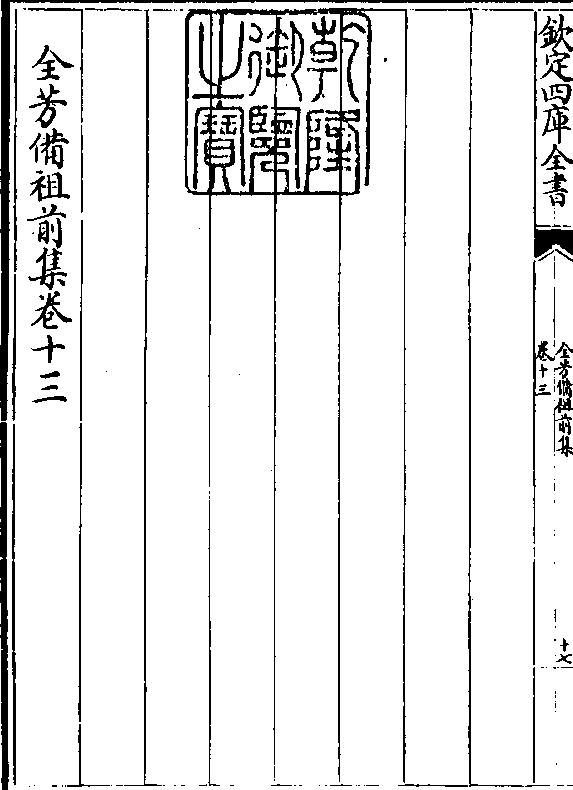 欽定四庫全書
全芳備祖前集
卷十三
十七
乾隆
御覽
之寶
全芳備祖前集卷十三